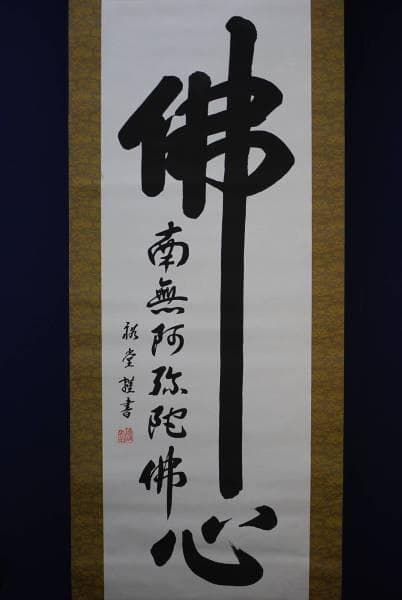 佛心
南無阿弥陀佛
裕堂謹書